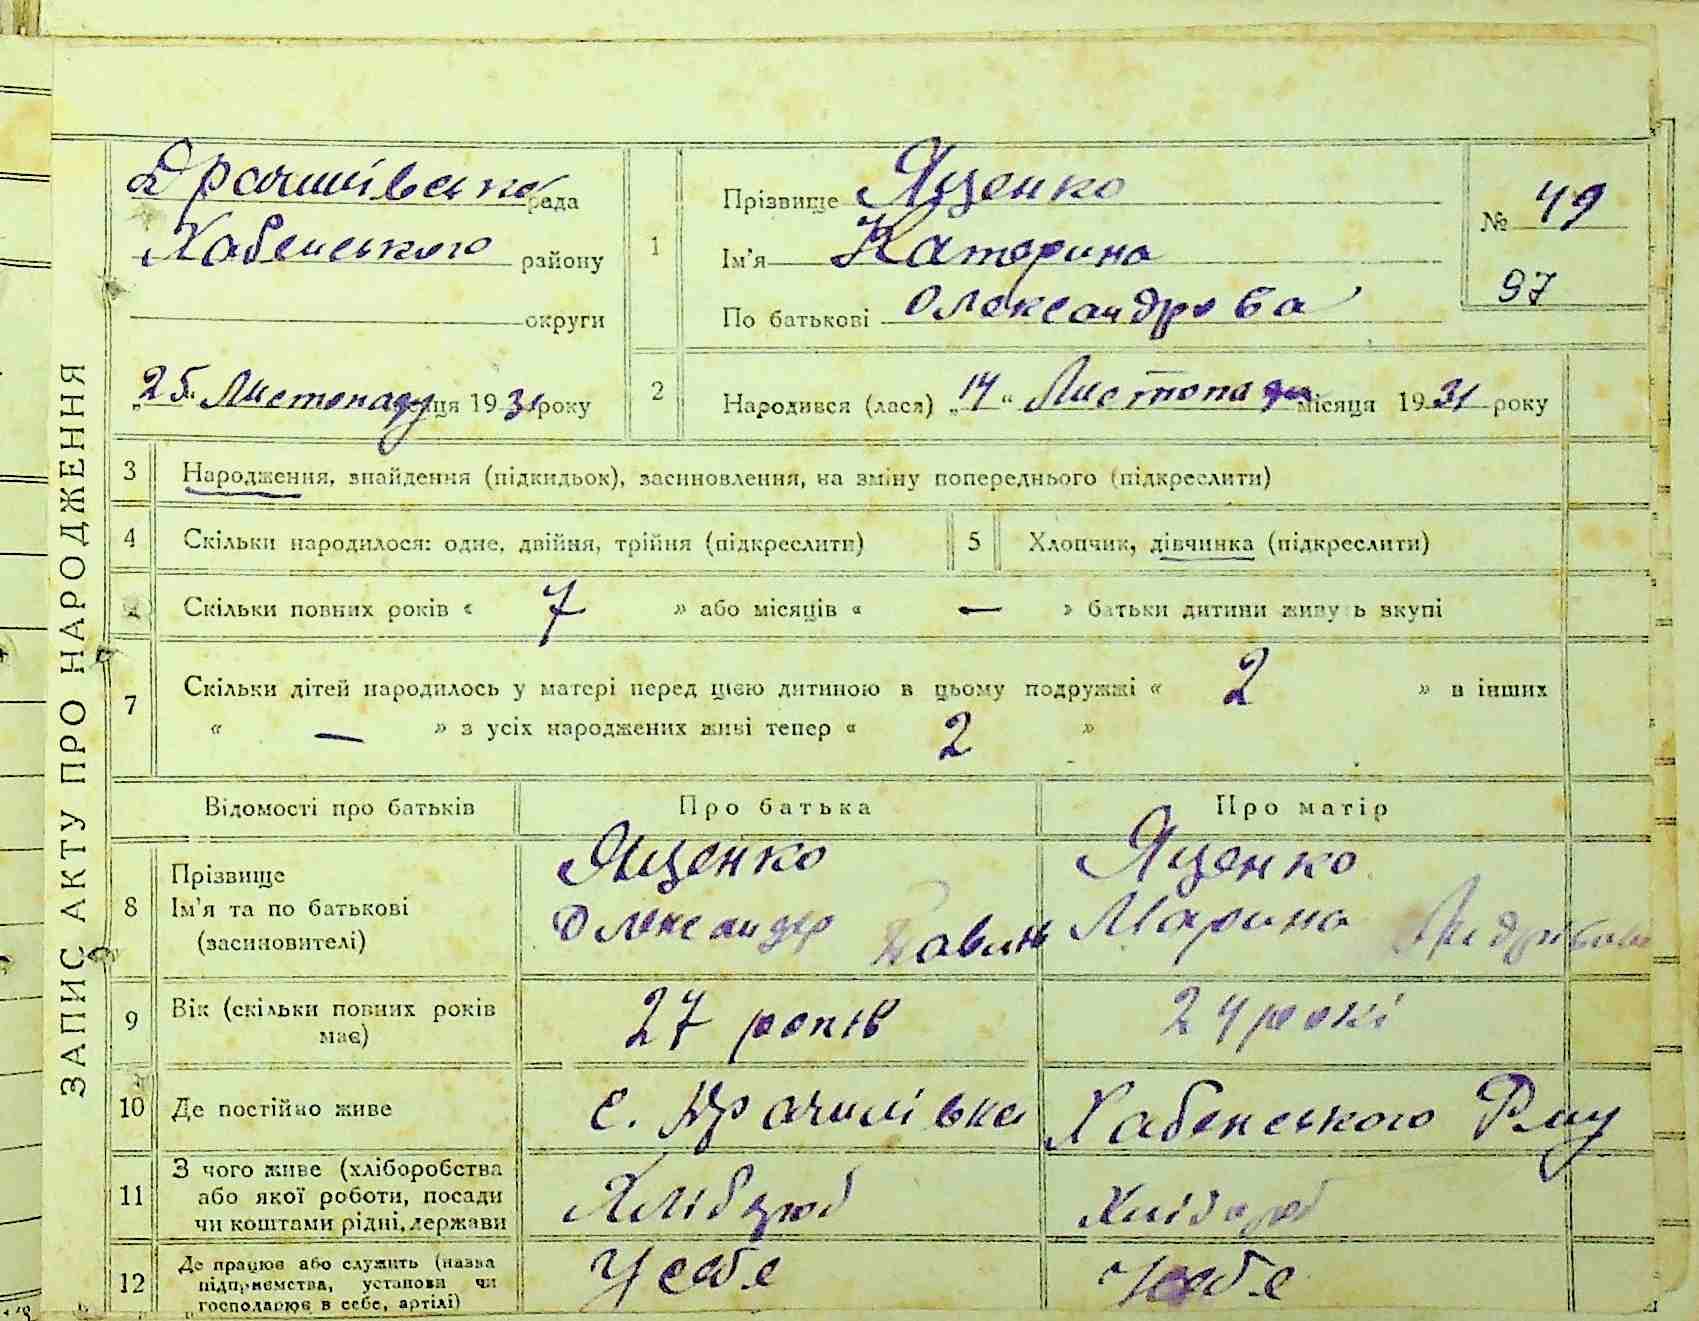 ЗАПИС АКТУ ПРО НАРОДЖЕННЯ
Драчилівська рада
Хабенського району
округи
„25" Листопаду місяця 1931 року
1
Прізвище Ященко
Ім'я Катерина
По батькові Олександрова
№ 49
97
2
Народився (лася) „14" Листопада місяця 1931 року
3 Народження, знайдення (підкидьок), засиновлення, на зміну попереднього (підкреслити)
4 Скільки народилося: одне, двійня, трійня (підкреслити)
5 Хлопчик, дівчинка (підкреслити)
Скільки повних років « 7 » або місяців « — » батьки дитини живуть вкупі
7 Скільки дітей народилось у матері перед цією дитиною в цьому подружжі « 2 » в інших
« — » з усіх народжених живі тепер « 2 »
Відомості про батьків Про батька Про матір
8
Прізвище
Ім'я та по батькові
(засиновителі)
Ященко
Олександер Павлов
Ященко
Марина
9
Вік (скільки повних років
має)
27 років
24 рокі
10 Де постійно живе с. Драчилівка Хабенського Р-ну
11
З чого живе (хліборобства
або якої роботи, посади
чи коштами рідні, держави
Хлібороб
Хлібороб
12
Де працює або служить (назва
підприємства, установи чи
господарює в себе, артілі)
У себе
У себе